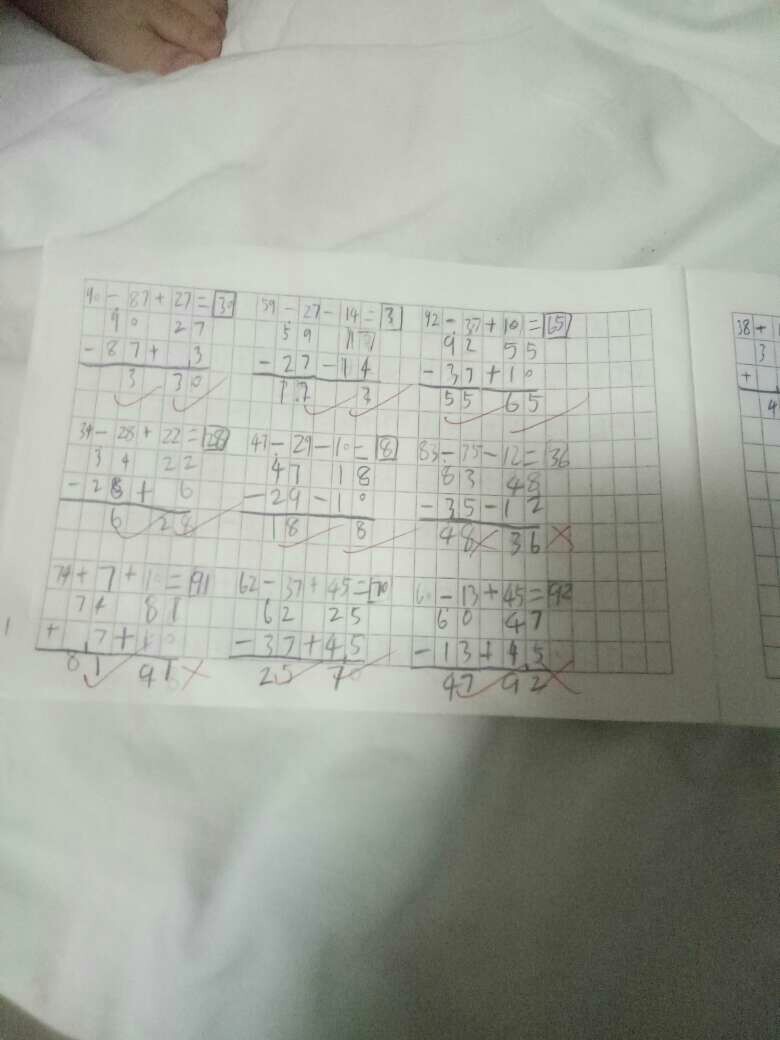 90 - 87 + 27 = 30
90 27
- 87 + 3
3 30
59 - 27 - 14 = 3
59 17
- 27 - 14
17 3
92 - 37 + 10 = 65
92 55
- 37 + 10
55 65
34 - 28 + 22 = 28
34 22
- 28 + 6
6 28
47 - 29 - 10 = 8
47 18
- 29 - 10
18 8
83 - 35 - 12 = 36
83 48
- 35 - 12
48 36
74 + 7 + 10 = 91
74 81
+ 7 + 10
81 91
62 - 37 + 45 = 70
62 25
- 37 + 45
25 70
60 - 13 + 45 = 92
60 47
- 13 + 45
47 92
38 +
3
+
4